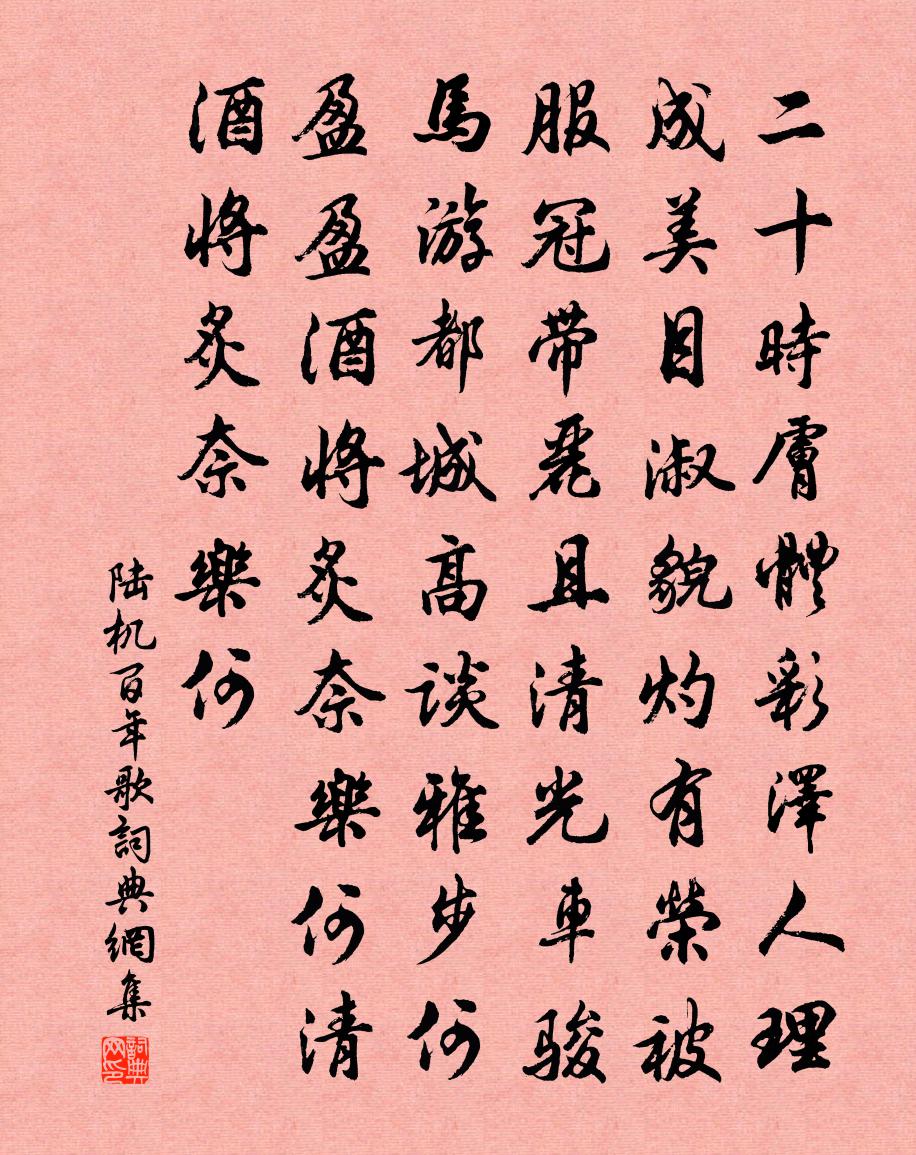 二十時膚體彩澤人理
成美目淑貌灼有榮被
服冠帶麗且清光車骏
馬游都城高談雅步何
盈盈酒將炙奈樂何清
酒將炙奈樂何
陆机百年歌詞典網集
詞典网印